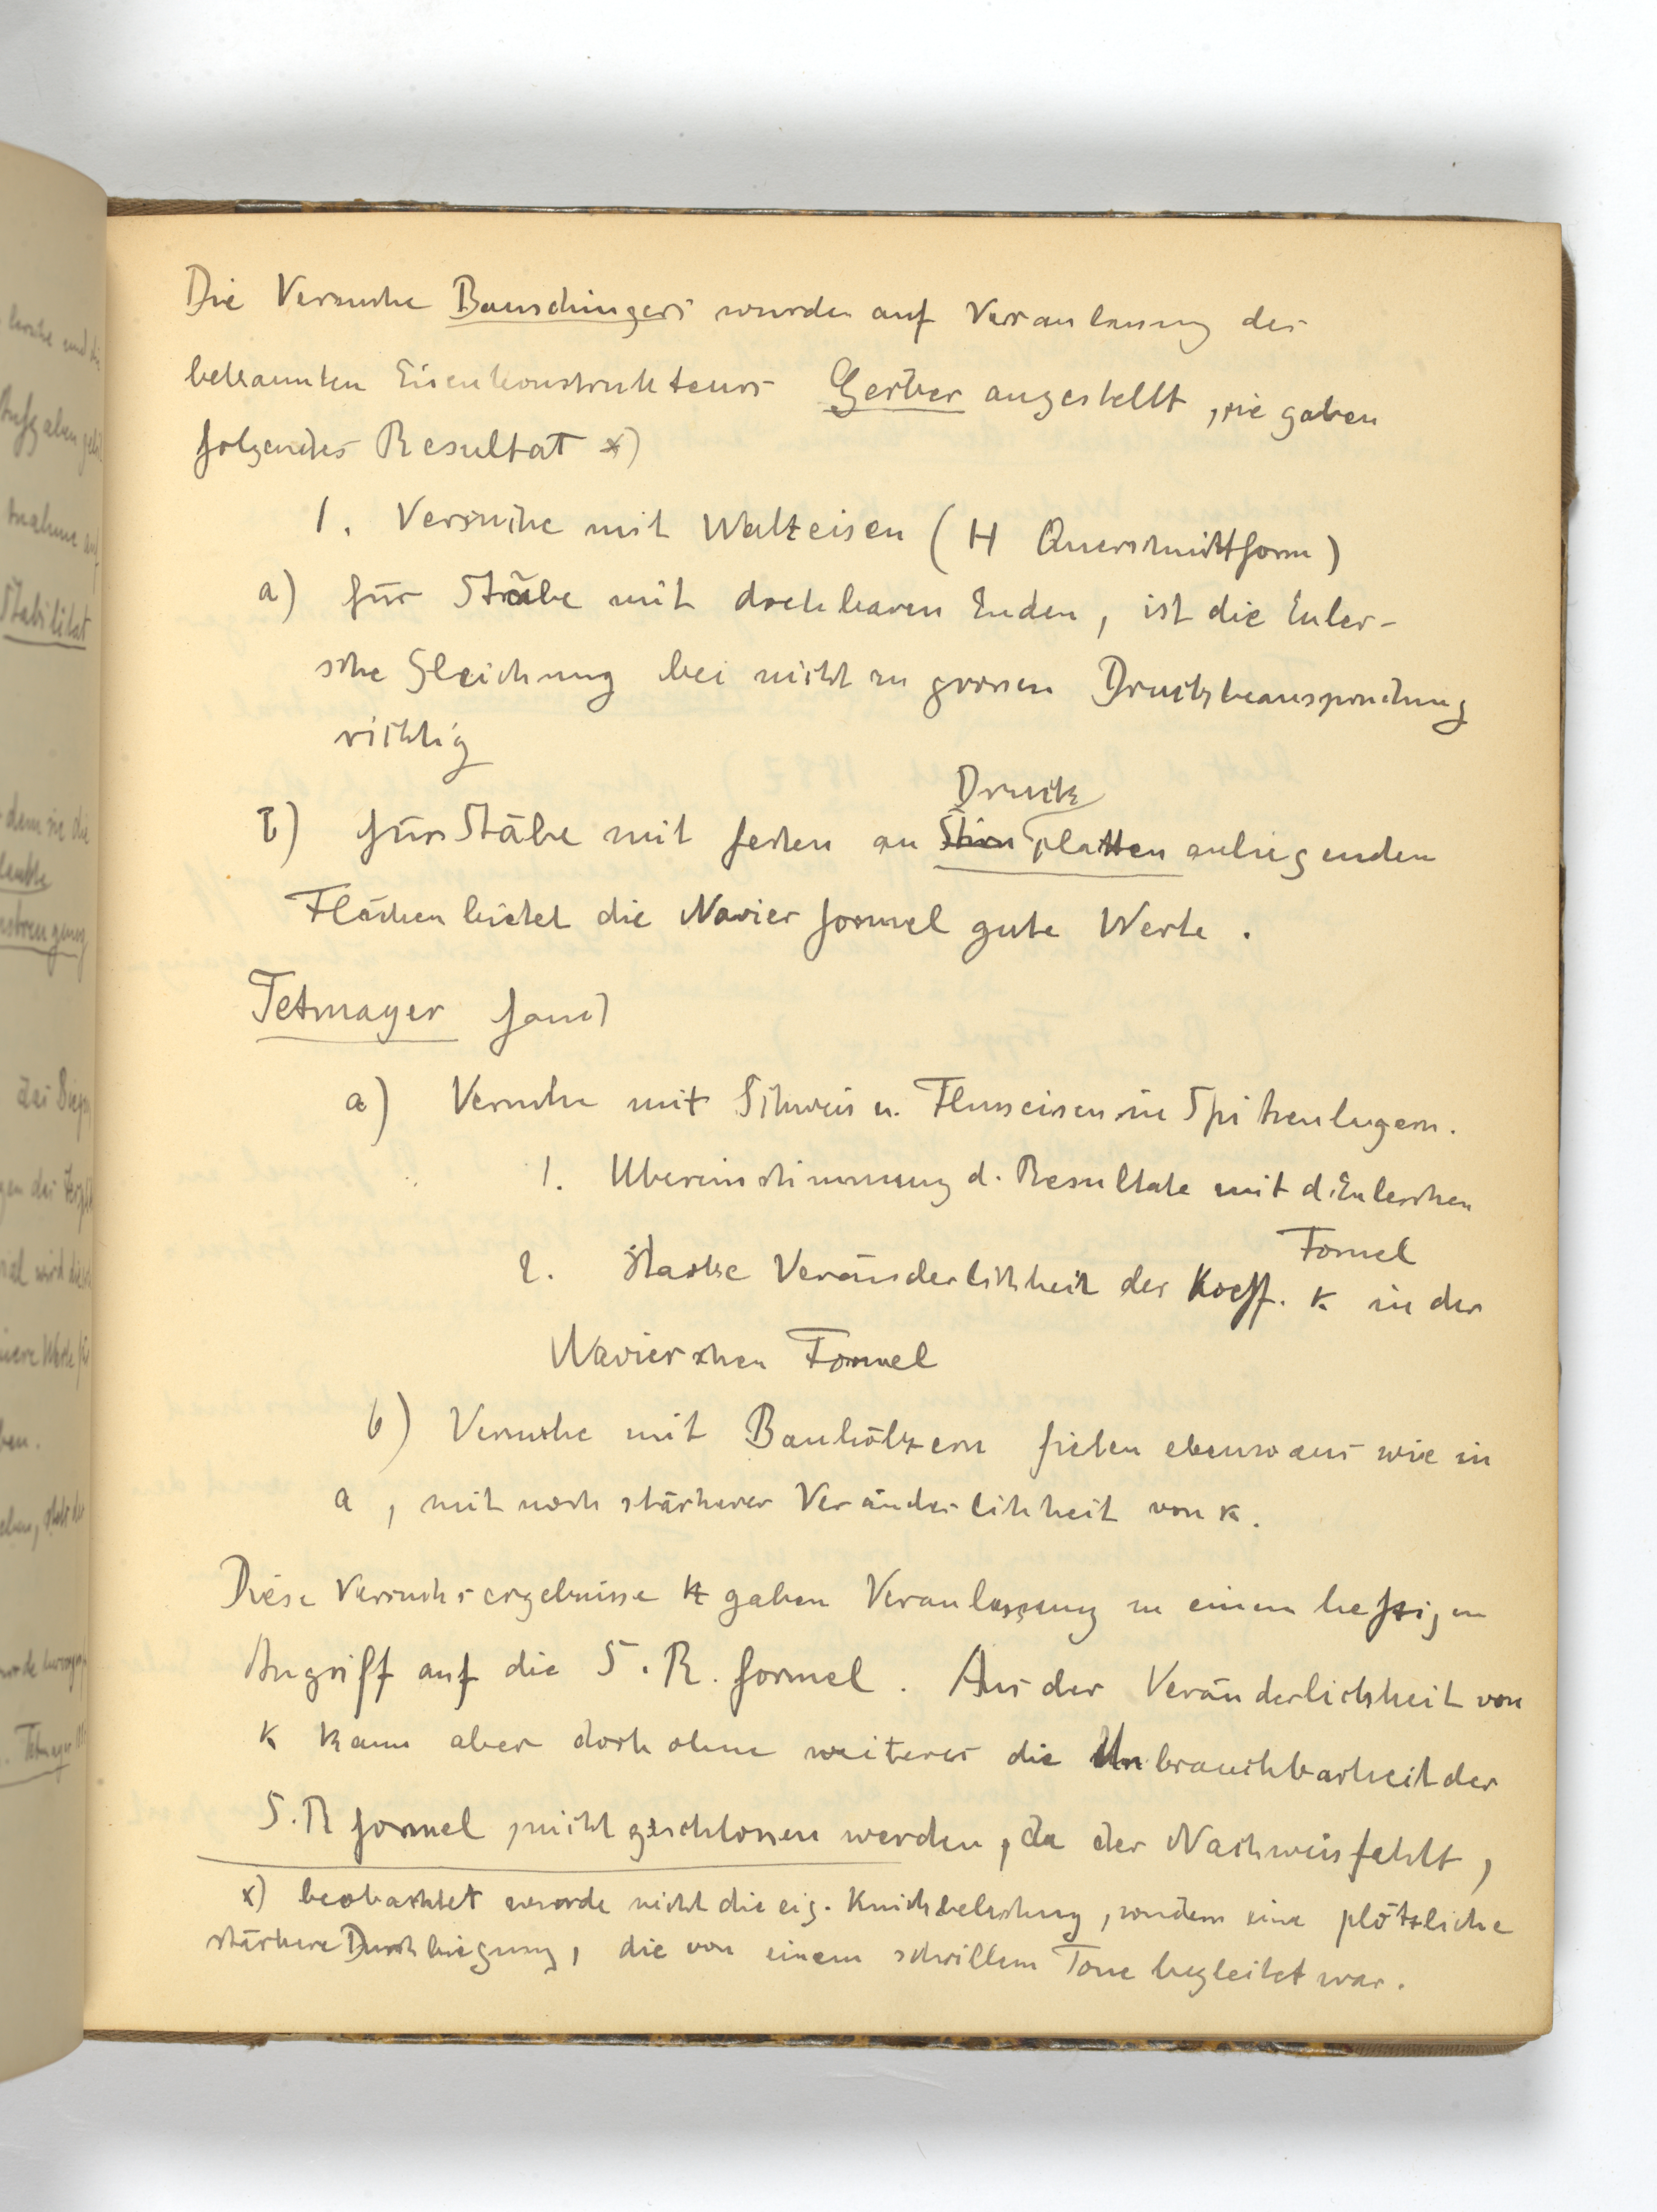 Die Versuche Bauschingers wurden auf Veranlassung des
bekannten Eisenkonstrukteurs Gerber angestellt, sie gaben
folgendes Resultat x)
1. Versuche mit Walzeisen (H Querschnittform)
a) für Stäbe mit drehbaren Enden, ist die Euler-
sche Gleichung bei nicht zu grossen Druckbeanspruchung
richtig
Druck
b) für Stäbe mit festen an Stirn platten anliegenden
Flächen bietet die Navier formel gute Werte.
Tetmayer fand
a) Versuche mit Schweis u. Flusseisen in Spitzenlagern.
1. Übereinstimmung d. Resultate mit d. Eulerschen
Formel
2. starke Veränderlichkeit der Koeff. κ in der
Navierschen Formel
b) Versuche mit Bauhölzern fielen ebenso aus wie in
a, mit noch stärkerer Veränderlichkeit von κ.
Diese Versuchsergebnisse gaben Veranlassung zu einem heftigen
Angriff auf die S.R. formel. Aus der Veränderlichkeit von
κ kann aber doch ohne weiteres die Unbrauchbarkeit der
S.R formel, nicht geschlossen werden, da der Nachweis fehlt,
x) beobachtet wurde nicht die eig. Knickbelastung, sondern eine plötzliche
stärkere Durchbiegung, die von einem schrillem Tone begleitet war.
Aufgaben
Stabilität